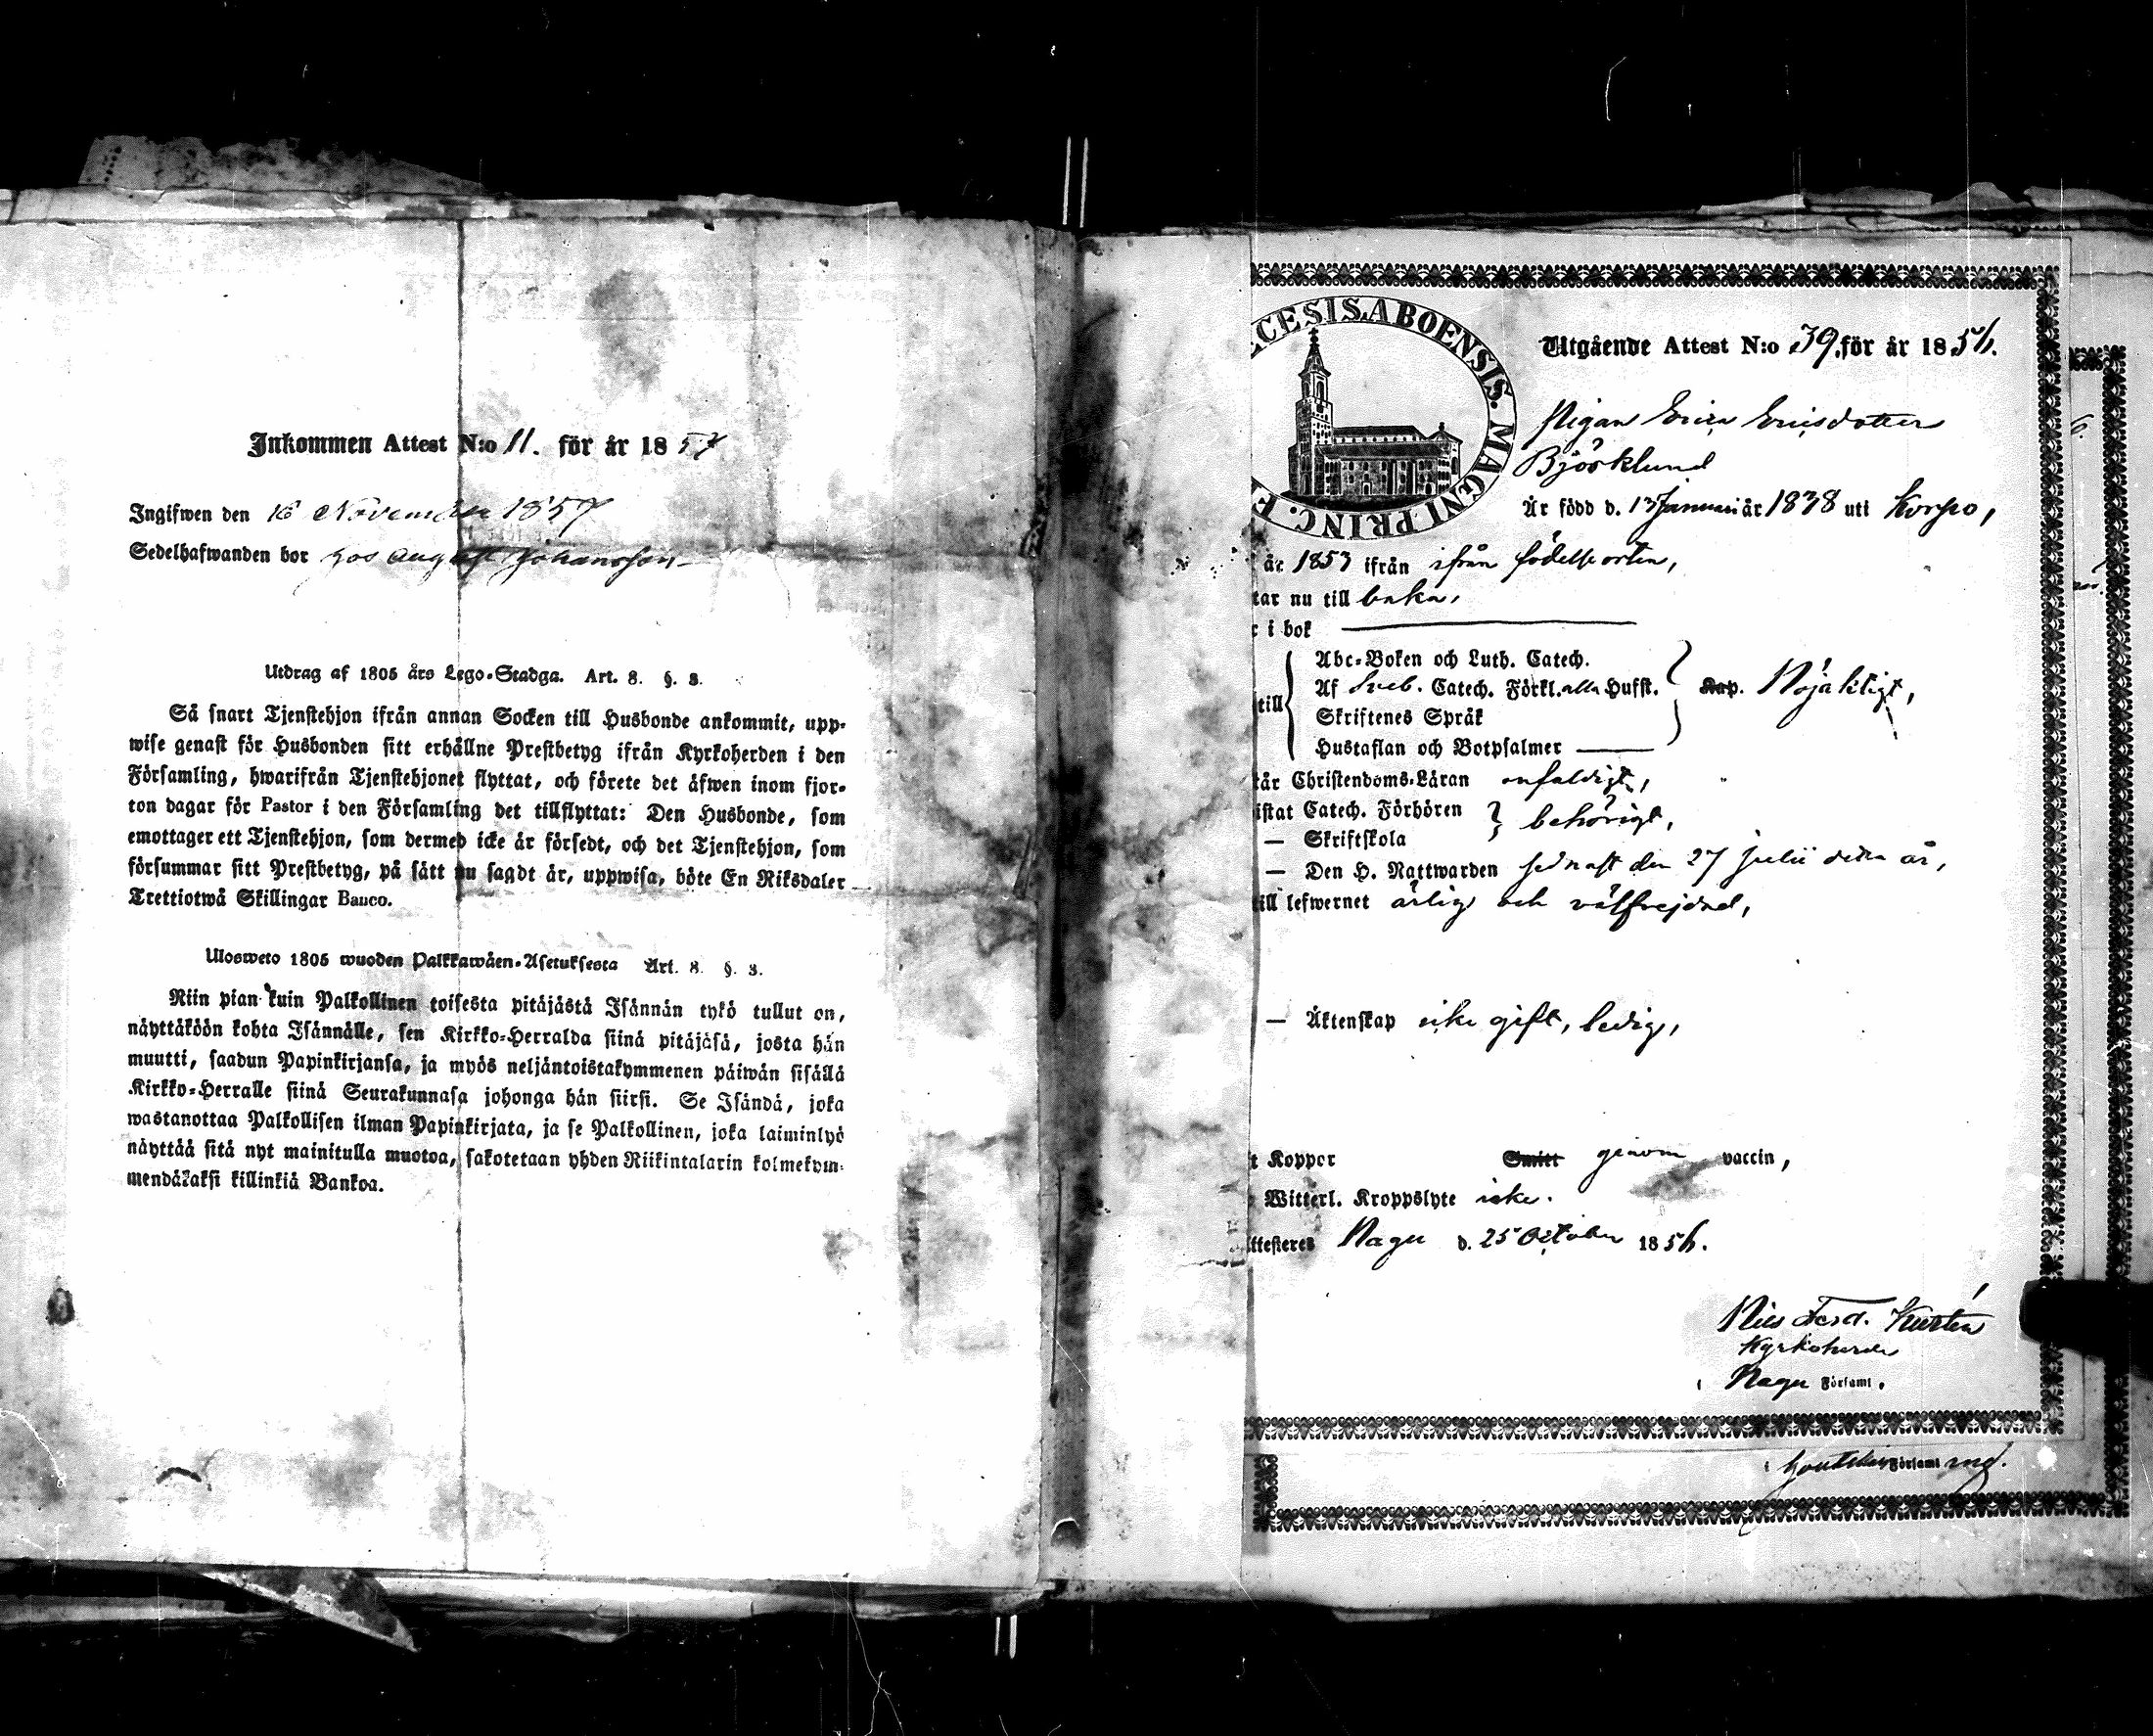 Inkommen Attest N:o 11. för år 1857
Ingifwen den 16 November 1857
Sedelhafwanden bor hos August Johansson
Utdrag af 1805 års Lego-Stadga. Art. 8. §. 3.
Så snart Tjenstehjon ifrån annan Socken till Husbonde ankommit, upp-
wise genast för Husbonden sitt erhållne Prestbetyg ifrån Kyrkoherden i den
Församling, hwarifrån Tjenstehjonet flyttat, och förete det äfwen inom fjor-
ton dagar för Pastor i den Församling det tillflyttat: Den Husbonde, som
emottager ett Tjenstehjon, som dermed icke är försedt, och det Tjenstehjon, som
försummar sitt Prestbetyg, på sätt nu sagdt är, uppwisa, böte En Riksdaler
Trettiotwå Skillingar Banco.
Ulosweto 1805 wuoden Palkkawäen-Asetuksesta Art. 8. §. 3.
Niin pian kuin Palkollinen toisesta pitäjästä Isännän tykö tullut on,
näyttäköön kohta Isännälle, sen Kirkko-Herralda siinä pitäjäsä, josta hän
muutti, saadun Papinkirjansa, ja myös neljäntoistakymmenen päiwän sisällä
Kirkko-Herralle siinä Seurakunnasa johonga hän siirsi. Se Isändä, joka
wastanottaa Palkollisen ilman Papinkirjata, ja se Palkollinen, joka laiminlyö
näyttää sitä nyt mainitulla muotoa, sakotetaan yhden Riikintalarin kolmekym-
mendäkaksi killinkiä Bankoa.
CESIS.ABOENSIS. MAGNI PRINC. F
Utgående Attest N:o 39. för år 1856.
Pigan Erica Ericsdotter
Björklund
Är född d. 13 Januari år 1838 uti Korpo,
år 1853 ifrån ifrån födelseorten,
tar nu till baka,
i bok
Abc-Boken och Luth. Catech.
till Af Sveb. Catech. Förkl. alla Hufst. Kap. Nöjaktigt,
Skriftenes Språk
Hustaflan och Botpsalmer
tår Christendoms-Läran enfaldigt,
istat Catech. Förhören behörigt,
— Skriftskola
— Den H. Nattwarden sednast den 27 Julii detta år,
till lefwernet ärlig och välfrejdad,
— Äktenskap icke gift, ledig,
t Koppor Smitt genom vaccin,
Witterl. Kroppslyte icke.
ttesteres Nagu d. 25 October 1856.
Nils Ferd. Kurtén
Kyrkoherde
i Nagu Församl.
i Houtskär Församl